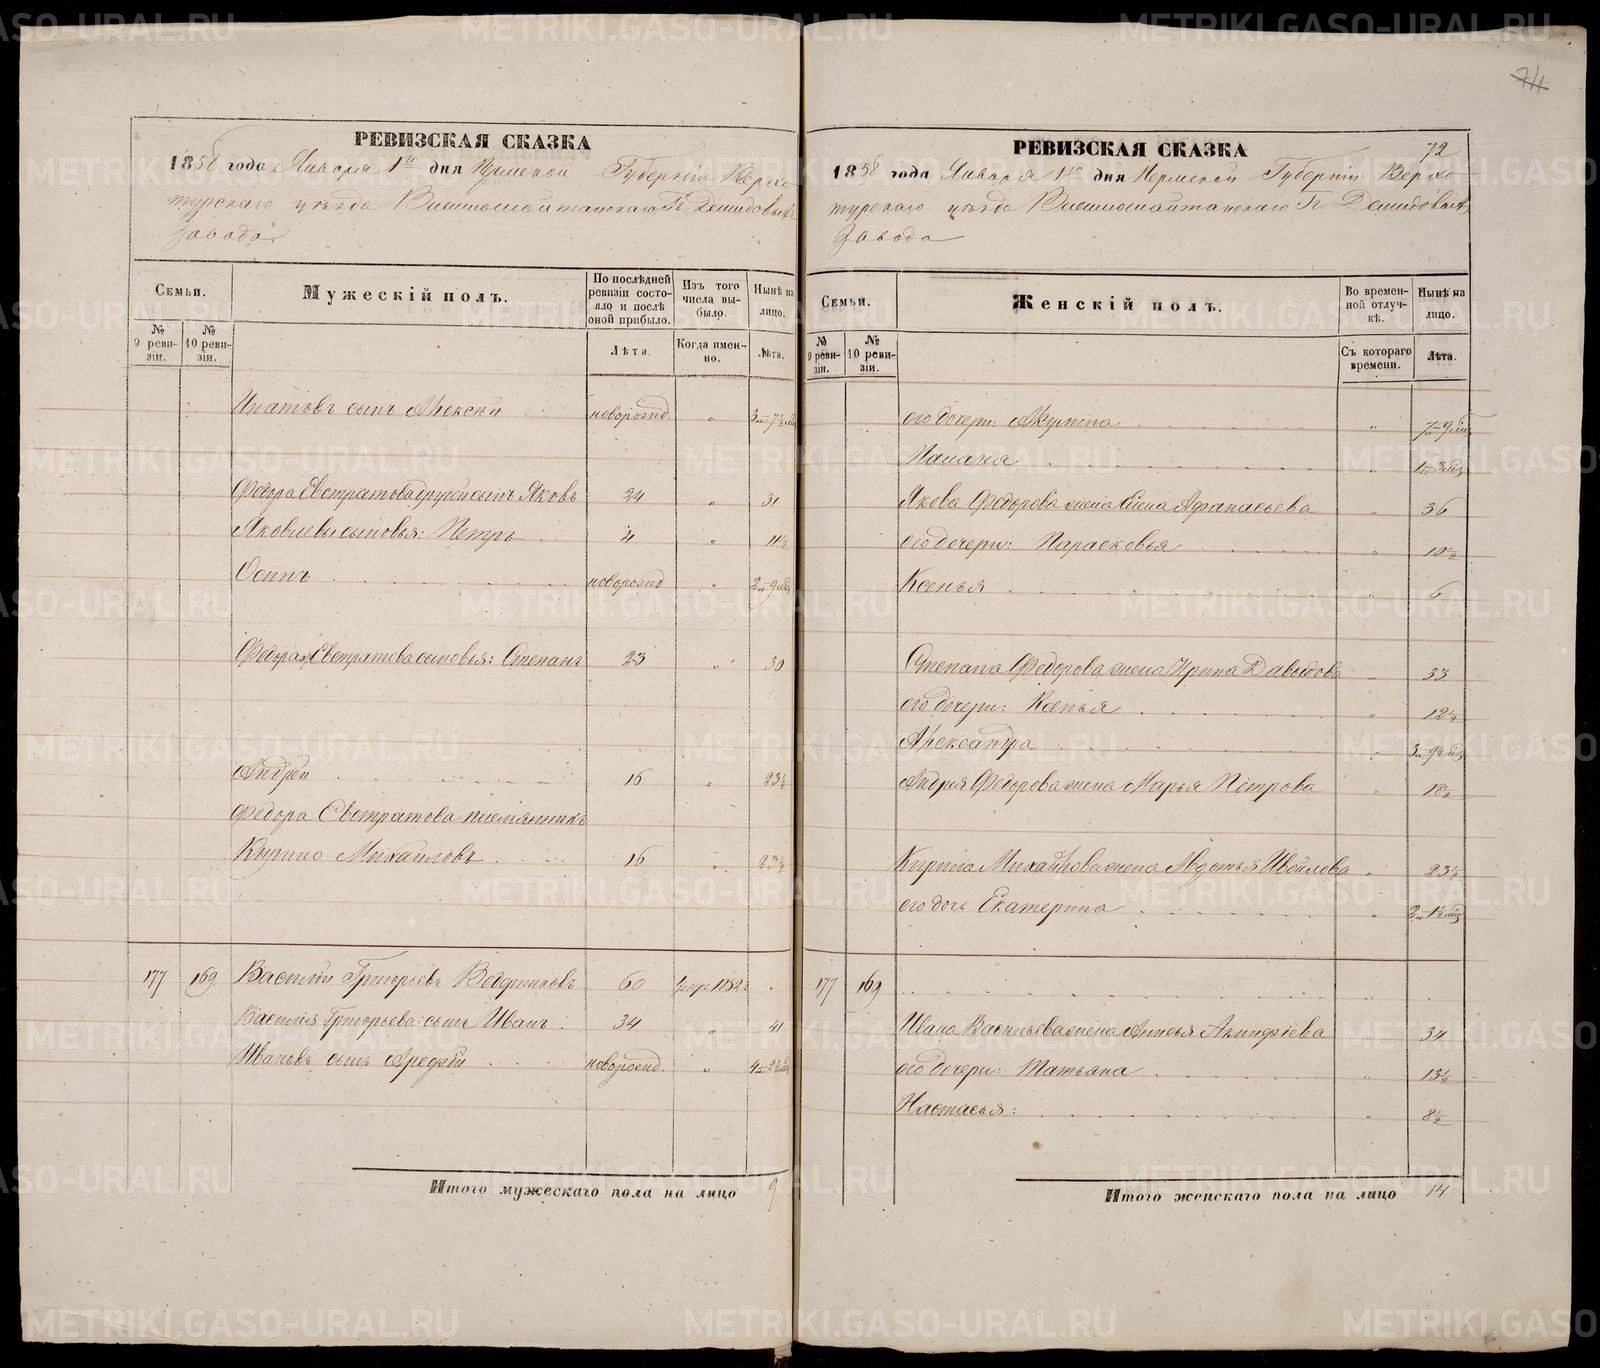 74
РЕВИЗСКАЯ СКАЗКА
1858 года Января 1го дня Пермской Губернiи Верхо-
турскаго уѣзда Висимошайтанскаго Гг Демидовыхъ
Завода
Семьи.
Мужескiй полъ.
По послѣдней ревизiи состо-яло и послѣ оной прибыло.
Изъ того числа вы-было.
Нынѣ на лицо.
№ 9 реви-зiи.
№ 10 реви-зiи.
Лѣта.
Когда имен-но.
Лѣта.
Ипатовъ сынъ Алексѣй новорожд. „
Федора Евстратова другой сынъ Яковъ 24 „ 31
Яковлевы сыновья: Петръ 4 „ 11½
Осипъ новорожд „ 2 9 мѣ
Федора Евстратова сыновья: Степанъ 23 „ 30
Андрей 16 „ 23½
Федора Евстратова племянникъ
Кирило Михайловъ 16 „ 23½
177 169 Василiй Григорьевъ 60 1852
Василiя Григорьева сынъ Иванъ 34 „ 41
Ивановъ сынъ новорожд. „
Итого мужескаго пола на лицо 9
РЕВИЗСКАЯ СКАЗКА 72
1858 года Января 1го дня Пермской Губернiи Верхо-
турскаго уѣзда Висимошайтанскаго Гг Демидовыхъ
Завода
Семьи.
Женскiй полъ.
Во времен-ной отлуч-кѣ.
Нынѣ на лицо.
№ 9 реви-зiи.
№ 10 реви-зiи.
Съ котораго времени.
Лѣта.
его дочери: Акулина „ 7 9 мѣ
Палагея „ 1 3 мѣ
Якова Федорова жена Елена Афанасьева „ 36
его дочери: Парасковья „ 10½
Ксенья „ 6
Степана Федорова жена Ирина Давыдова „ 33
его дочери: Ксенья „ 12½
Александра „ 3
Андрея Федорова жена Марья Петрова „ 18½
Кирила Михайлова жена Авдотья „ 23½
его дочь Екатерина „ 2
177 169
Ивана Васильева жена Акинфiева „ 34
его дочери: Татьяна „ 13½
Настасья: „ 8½
Итого женскаго пола на лицо 14
METRIKI.GASO-URAL.RU